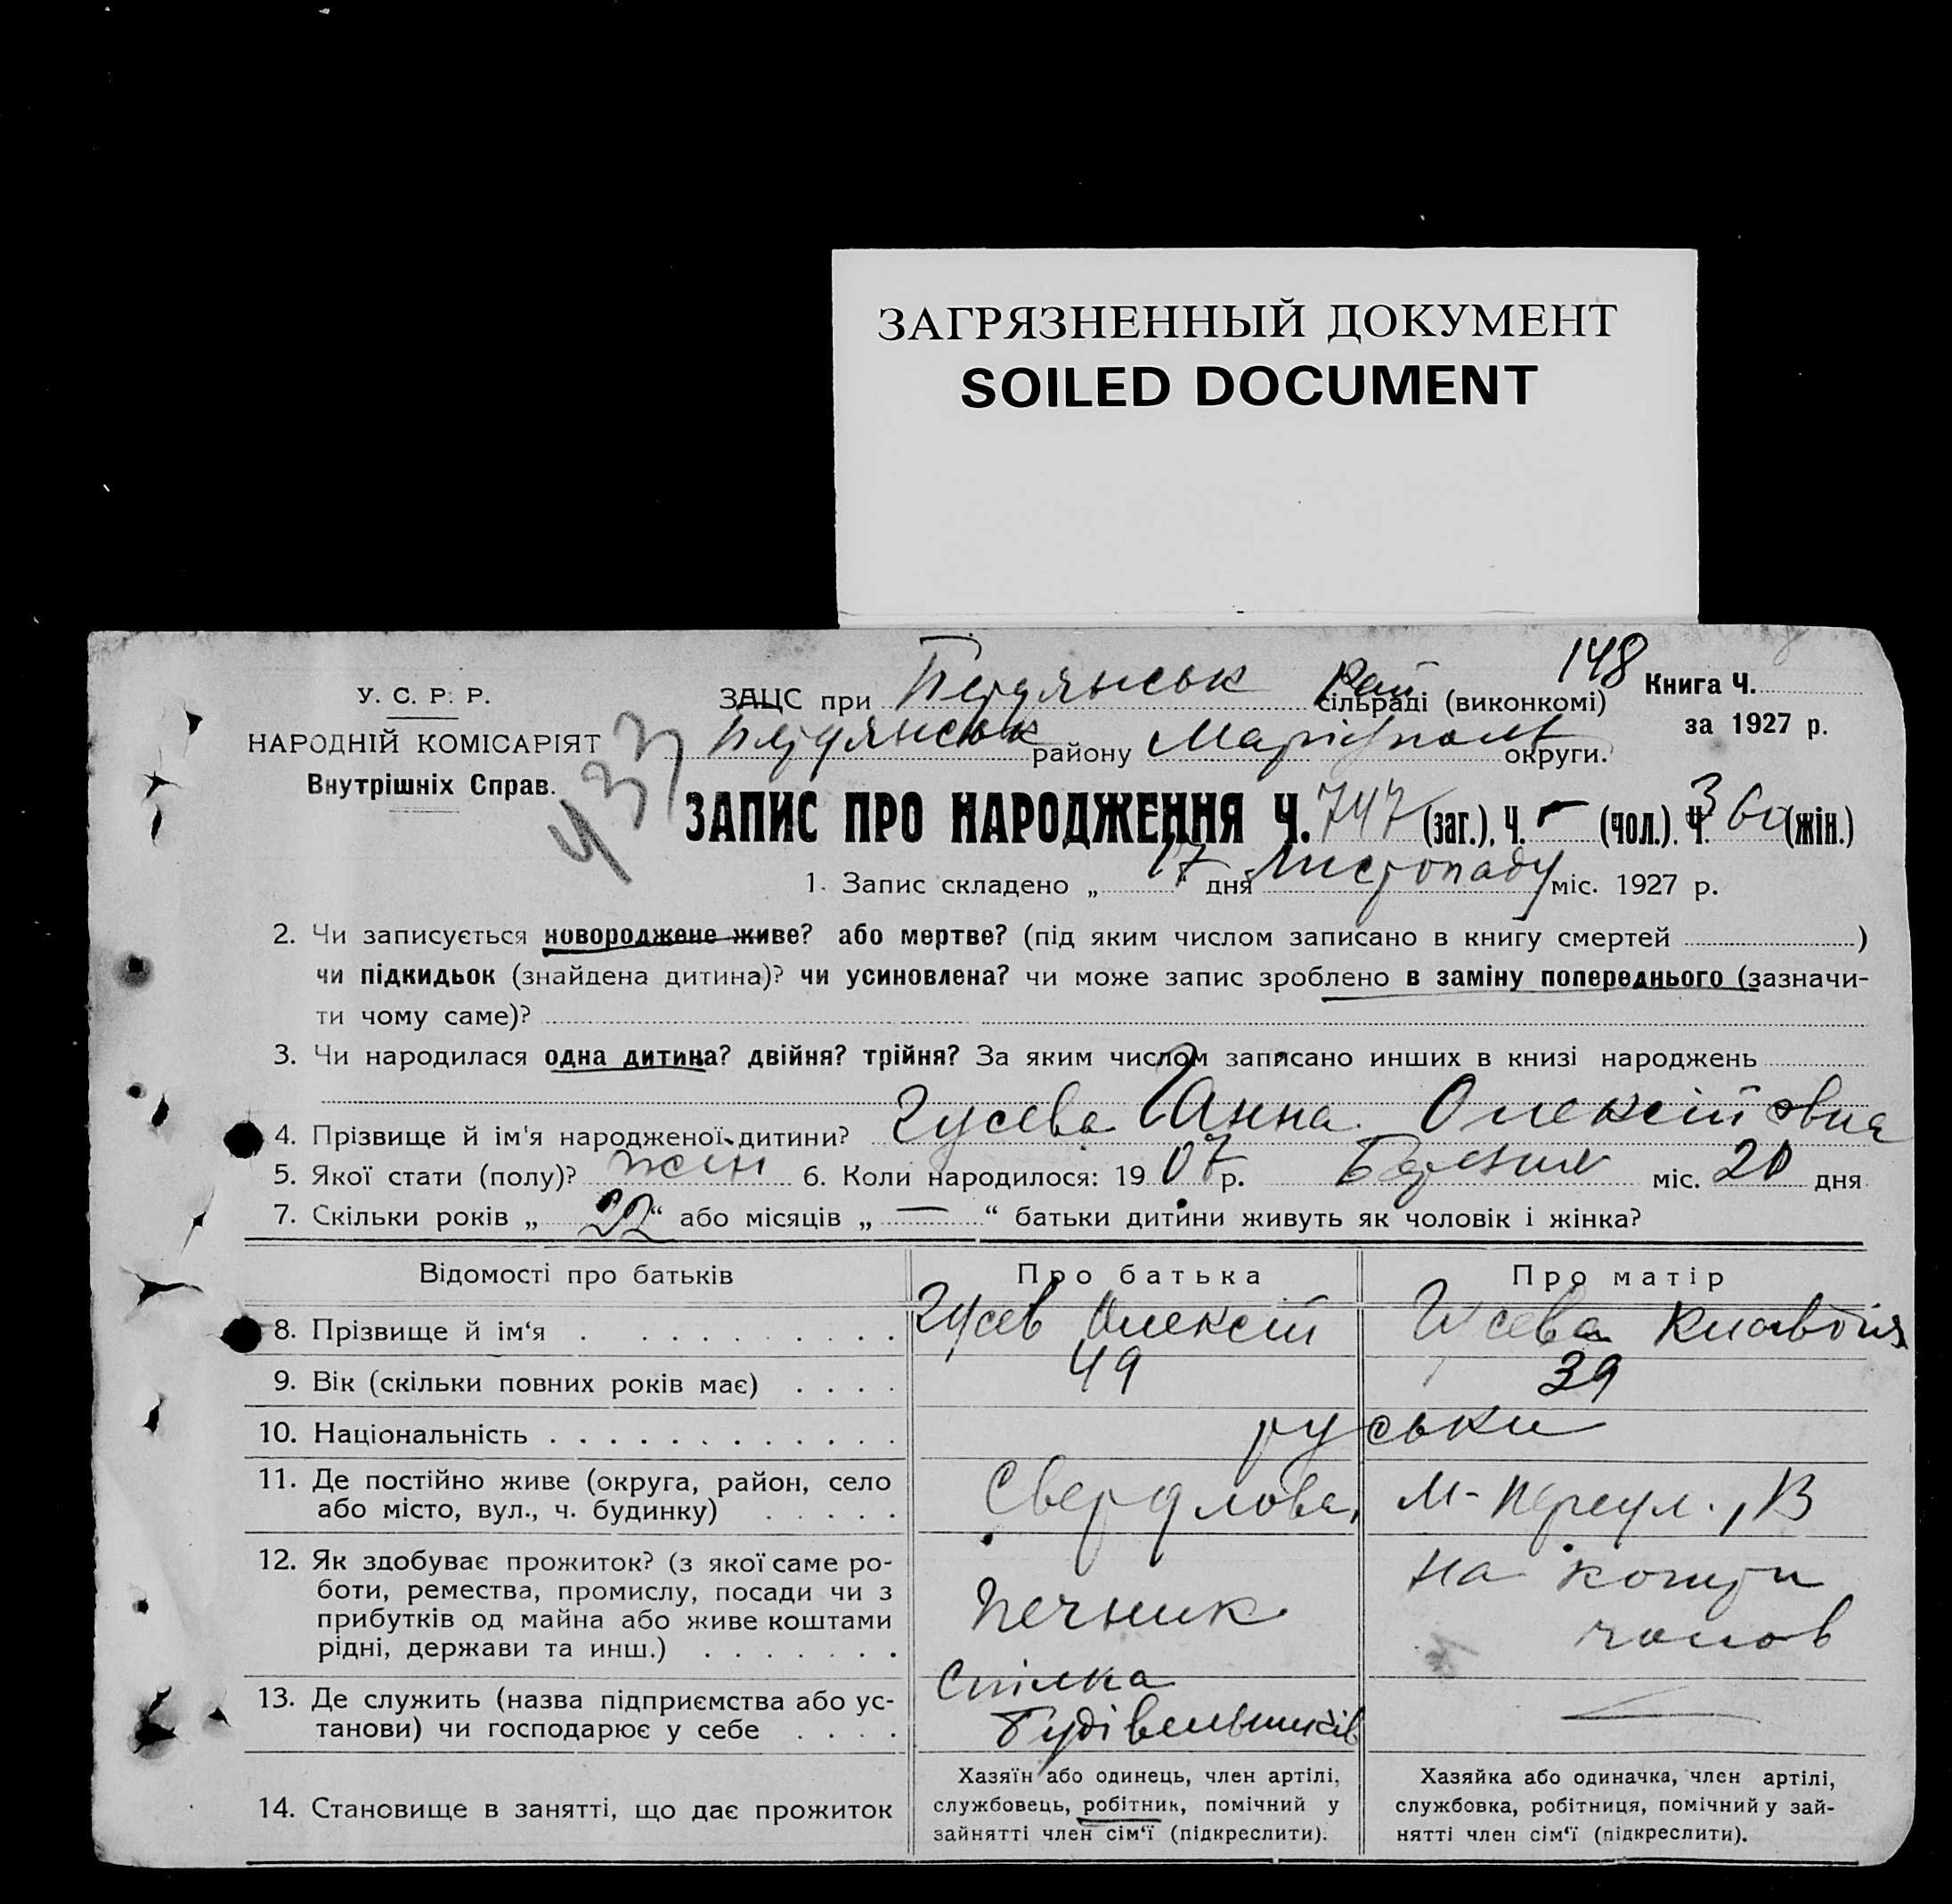 ЗАГРЯЗНЕННЫЙ ДОКУМЕНТ
SOILED DOCUMENT
148
У. С. Р. Р.
НАРОДНІЙ КОМІСАРІЯТ
Внутрішніх Справ.
433
ЗАЦС при Бердянськ Рай сільраді (виконкомі)
Бердянськ району Маріупольс округи.
Книга Ч.
за 1927 р.
ЗАПИС ПРО НАРОДЖЕННЯ Ч. 747 (заг.), Ч. – (чол.). Ч. 360 (жін.)
1. Запис складено „ 17 " дня Листопаду міс. 1927 р.
2. Чи записується новороджене живе? або мертве? (під яким числом записано в книгу смертей )
чи підкидьок (знайдена дитина)? чи усиновлена? чи може запис зроблено в заміну попереднього (зазначи-
ти чому саме)?
3. Чи народилася одна дитина? двійня? трійня? За яким числом записано инших в книзі народжень
4. Прізвище й ім'я народженої дитини? Гусева Ганна Олексіїовна
5. Якої стати (полу)? жін 6. Коли народилося: 1907 р. Березня міс. 20 дня
7. Скільки років „ 22 “ або місяців „ — “ батьки дитини живуть як чоловік і жінка?
Відомості про батьків Про батька Про матір
8. Прізвище й ім‘я Гусев Олексій Гусева Клавдія
9. Вік (скільки повних років має) 49 39
10. Національність руськи
11. Де постійно живе (округа, район, село
або місто, вул., ч. будинку) Свердлова, М-Переул.,
12. Як здобуває прожиток? (з якої саме ро-
боти, ремества, промислу, посади чи з
прибутків од майна або живе коштами
рідні, держави та инш.) Печник На кошти чолов
13. Де служить (назва підприємства або ус-
танови) чи господарює у себе Спілка Будівельників —
14. Становище в занятті, що дає прожиток
Хазяїн або одинець, член артілі,
службовець, робітник, помічний у
зайнятті член сім‘ї (підкреслити).
Хазяйка або одиначка, член артілі,
службовка, робітниця, помічний у зай-
нятті член сім‘ї (підкреслити).